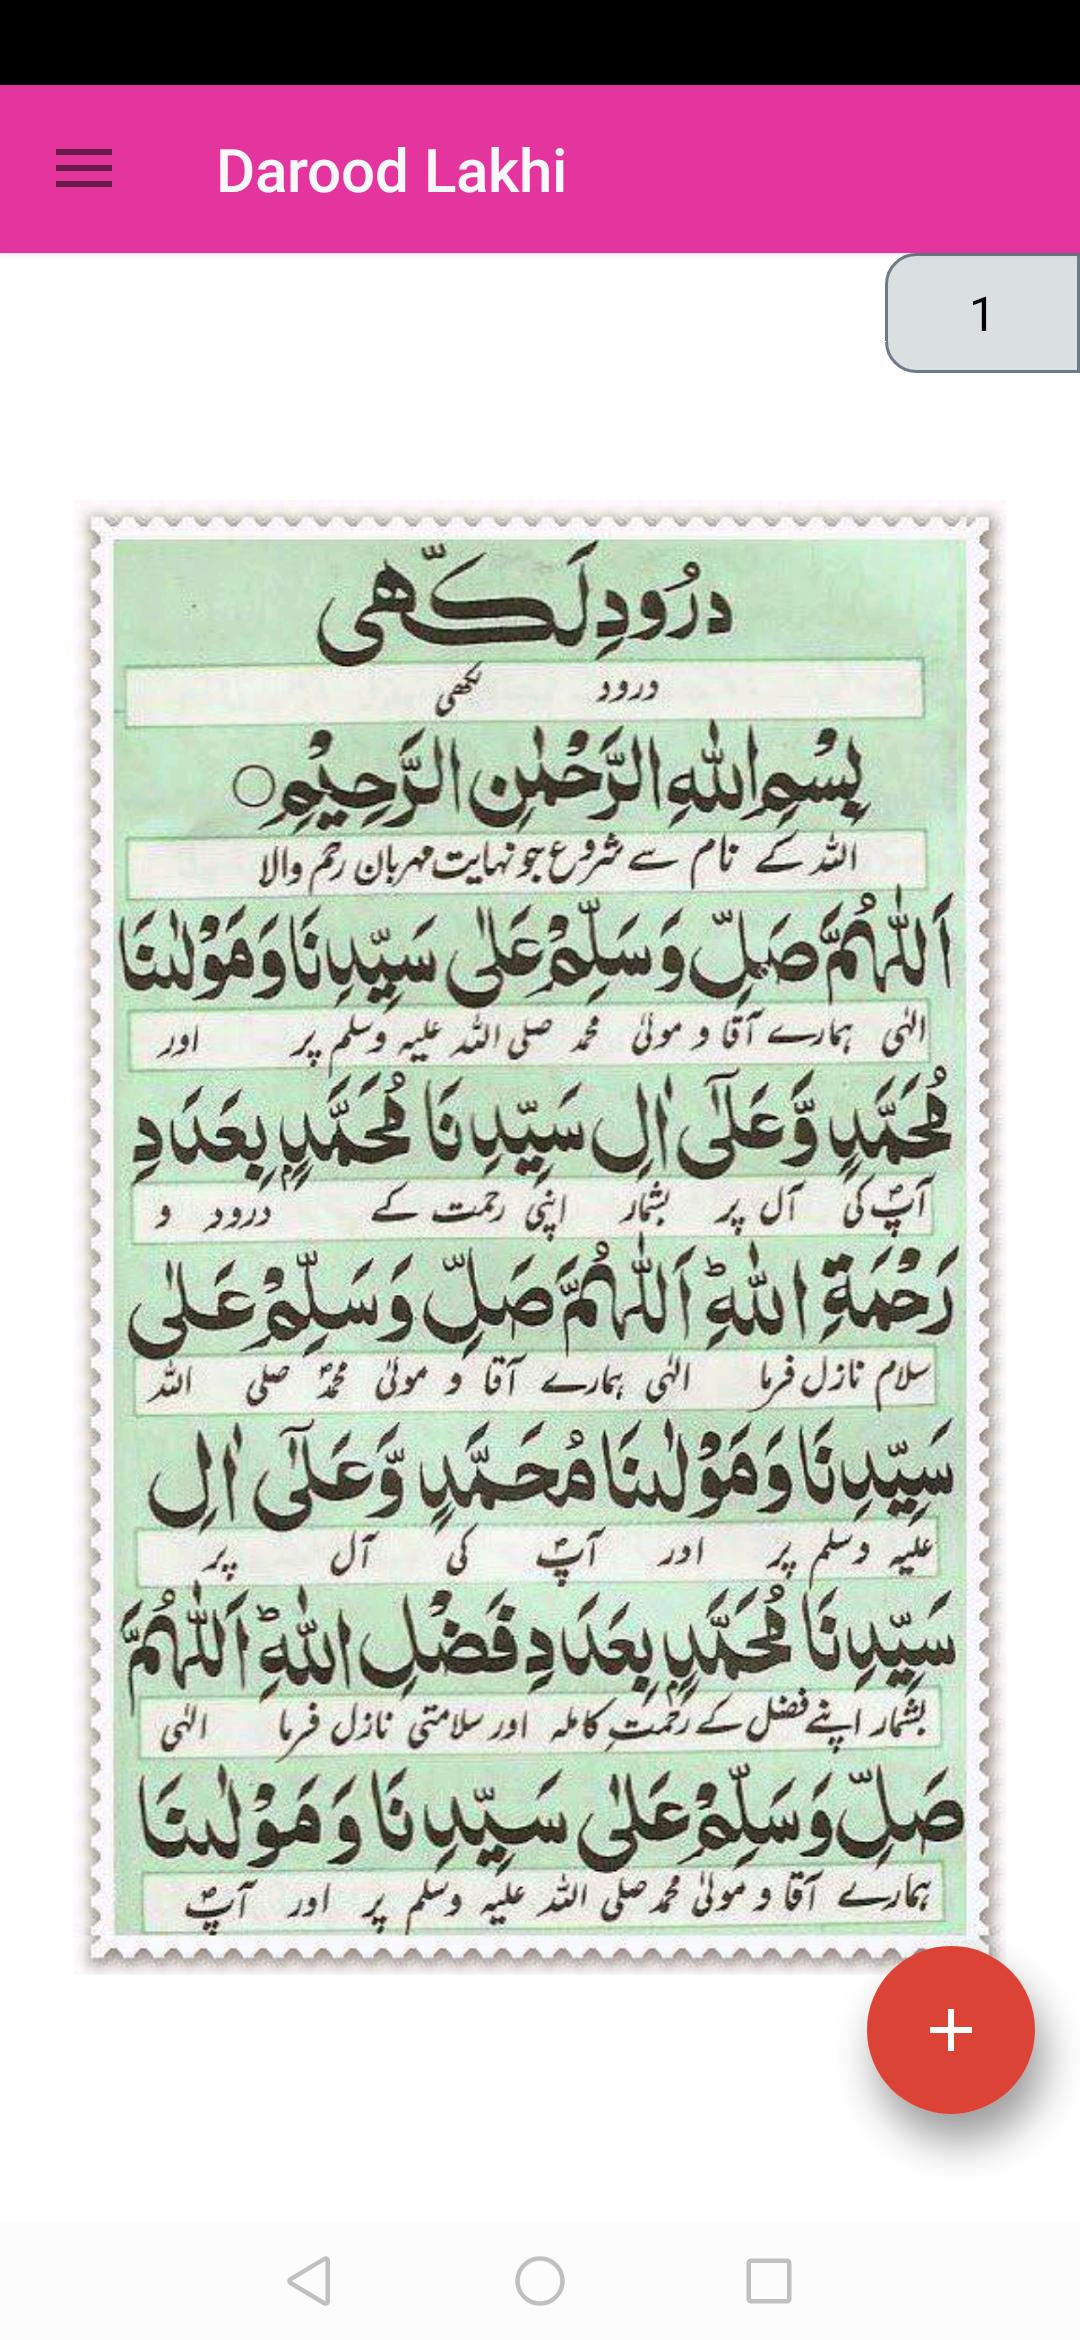 Darood Lakhi
1
درُودِ لَکّھی
درود لکھی
بِسْمِ اللّٰهِ الرَّحْمٰنِ الرَّحِيْمِ
اللہ کے نام سے شروع جو نہایت مہربان رحم والا
اَللّٰهُمَّ صَلِّ وَسَلِّمْ عَلٰى سَيِّدِنَا وَمَوْلٰىنَا
الٰہی ہمارے آقا و مولیٰ محمد صلی اللہ علیہ وسلم پر اور
مُحَمَّدٍ وَّعَلٰٓى اٰلِ سَيِّدِنَا مُحَمَّدٍۭ بِعَدَدِ
آپؐ کی آل پر بشمار اپنی رحمت کے درود و
رَحْمَةِ اللّٰهِؕ اَللّٰهُمَّ صَلِّ وَسَلِّمْ عَلٰى
سلام نازل فرما الٰہی ہمارے آقا و مولیٰ محمدؐ صلی اللہ
سَيِّدِنَا وَمَوْلٰىنَا مُحَمَّدٍ وَّعَلٰٓى اٰلِ
علیہ وسلم پر اور آپؐ کی آل پر
سَيِّدِنَا مُحَمَّدٍۭ بِعَدَدِ فَضْلِ اللّٰهِؕ اَللّٰهُمَّ
بشمار اپنے فضل کے رحمتِ کاملہ اور سلامتی نازل فرما الٰہی
صَلِّ وَسَلِّمْ عَلٰى سَيِّدِنَا وَمَوْلٰىنَا
ہمارے آقا و مولیٰ محمد صلی اللہ علیہ وسلم پر اور آپؐ